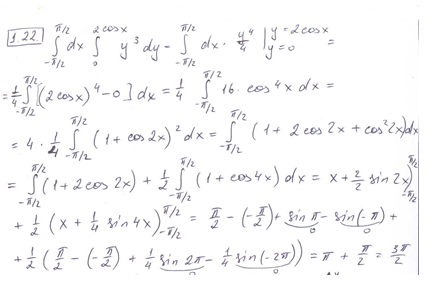 1.22. ∫_{-π/2}^{π/2} dx ∫_0^{2cosx} y³ dy = ∫_{-π/2}^{π/2} dx · y⁴/4 |_{y=0}^{y=2cosx} =
= 1/4 ∫_{-π/2}^{π/2} [(2cosx)⁴ - 0] dx = 1/4 ∫_{-π/2}^{π/2} 16 · cos⁴x dx =
= 4 · 1/4 ∫_{-π/2}^{π/2} (1 + cos2x)² dx = ∫_{-π/2}^{π/2} (1 + 2cos2x + cos²2x)dx
= ∫_{-π/2}^{π/2} (1 + 2cos2x) + 1/2 ∫_{-π/2}^{π/2} (1 + cos4x) dx = x + 2/2 sin2x)_{-π/2}^{π/2}
+ 1/2 (x + 1/4 sin4x)_{-π/2}^{π/2} = π/2 - (-π/2) + sinπ - sin(-π) +
0 0
+ 1/2 (π/2 - (-π/2) + 1/4 sin2π - 1/4 sin(-2π)) = π + π/2 = 3π/2
0 0